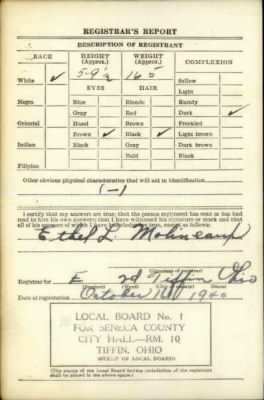 REGISTRAR'S REPORT
DESCRIPTION OF REGISTRANT
RACE HEIGHT (Approx.) WEIGHT (Approx.) COMPLEXION
White ✓ 5-9½ 165 Sallow
Light
EYES HAIR
Negro Blue Blonde Ruddy
Gray Red Dark ✓
Oriental Hazel Brown Freckled
Brown ✓ Black ✓ Light brown
Indian Black Gray Dark brown
Bald Black
Filipino
Other obvious physical characteristics that will aid in identification
(-)
I certify that my answers are true; that the person registered has read or has had
read to him his own answers; that I have witnessed his signature or mark and that
all of his answers of which I have knowledge are true, except
Ethel L.
(Signature of registrar)
Registrar for E 2d Tiffin Ohio
(Precinct) (Ward) (City or county) (State)
Date of registration October 16 1940
LOCAL BOARD No. 1
FOR SENECA COUNTY
CITY HALL—RM. 10
TIFFIN, OHIO
(STAMP OF LOCAL BOARD)
(The stamp of the Local Board having jurisdiction of the registrant
shall be placed in the above space.)